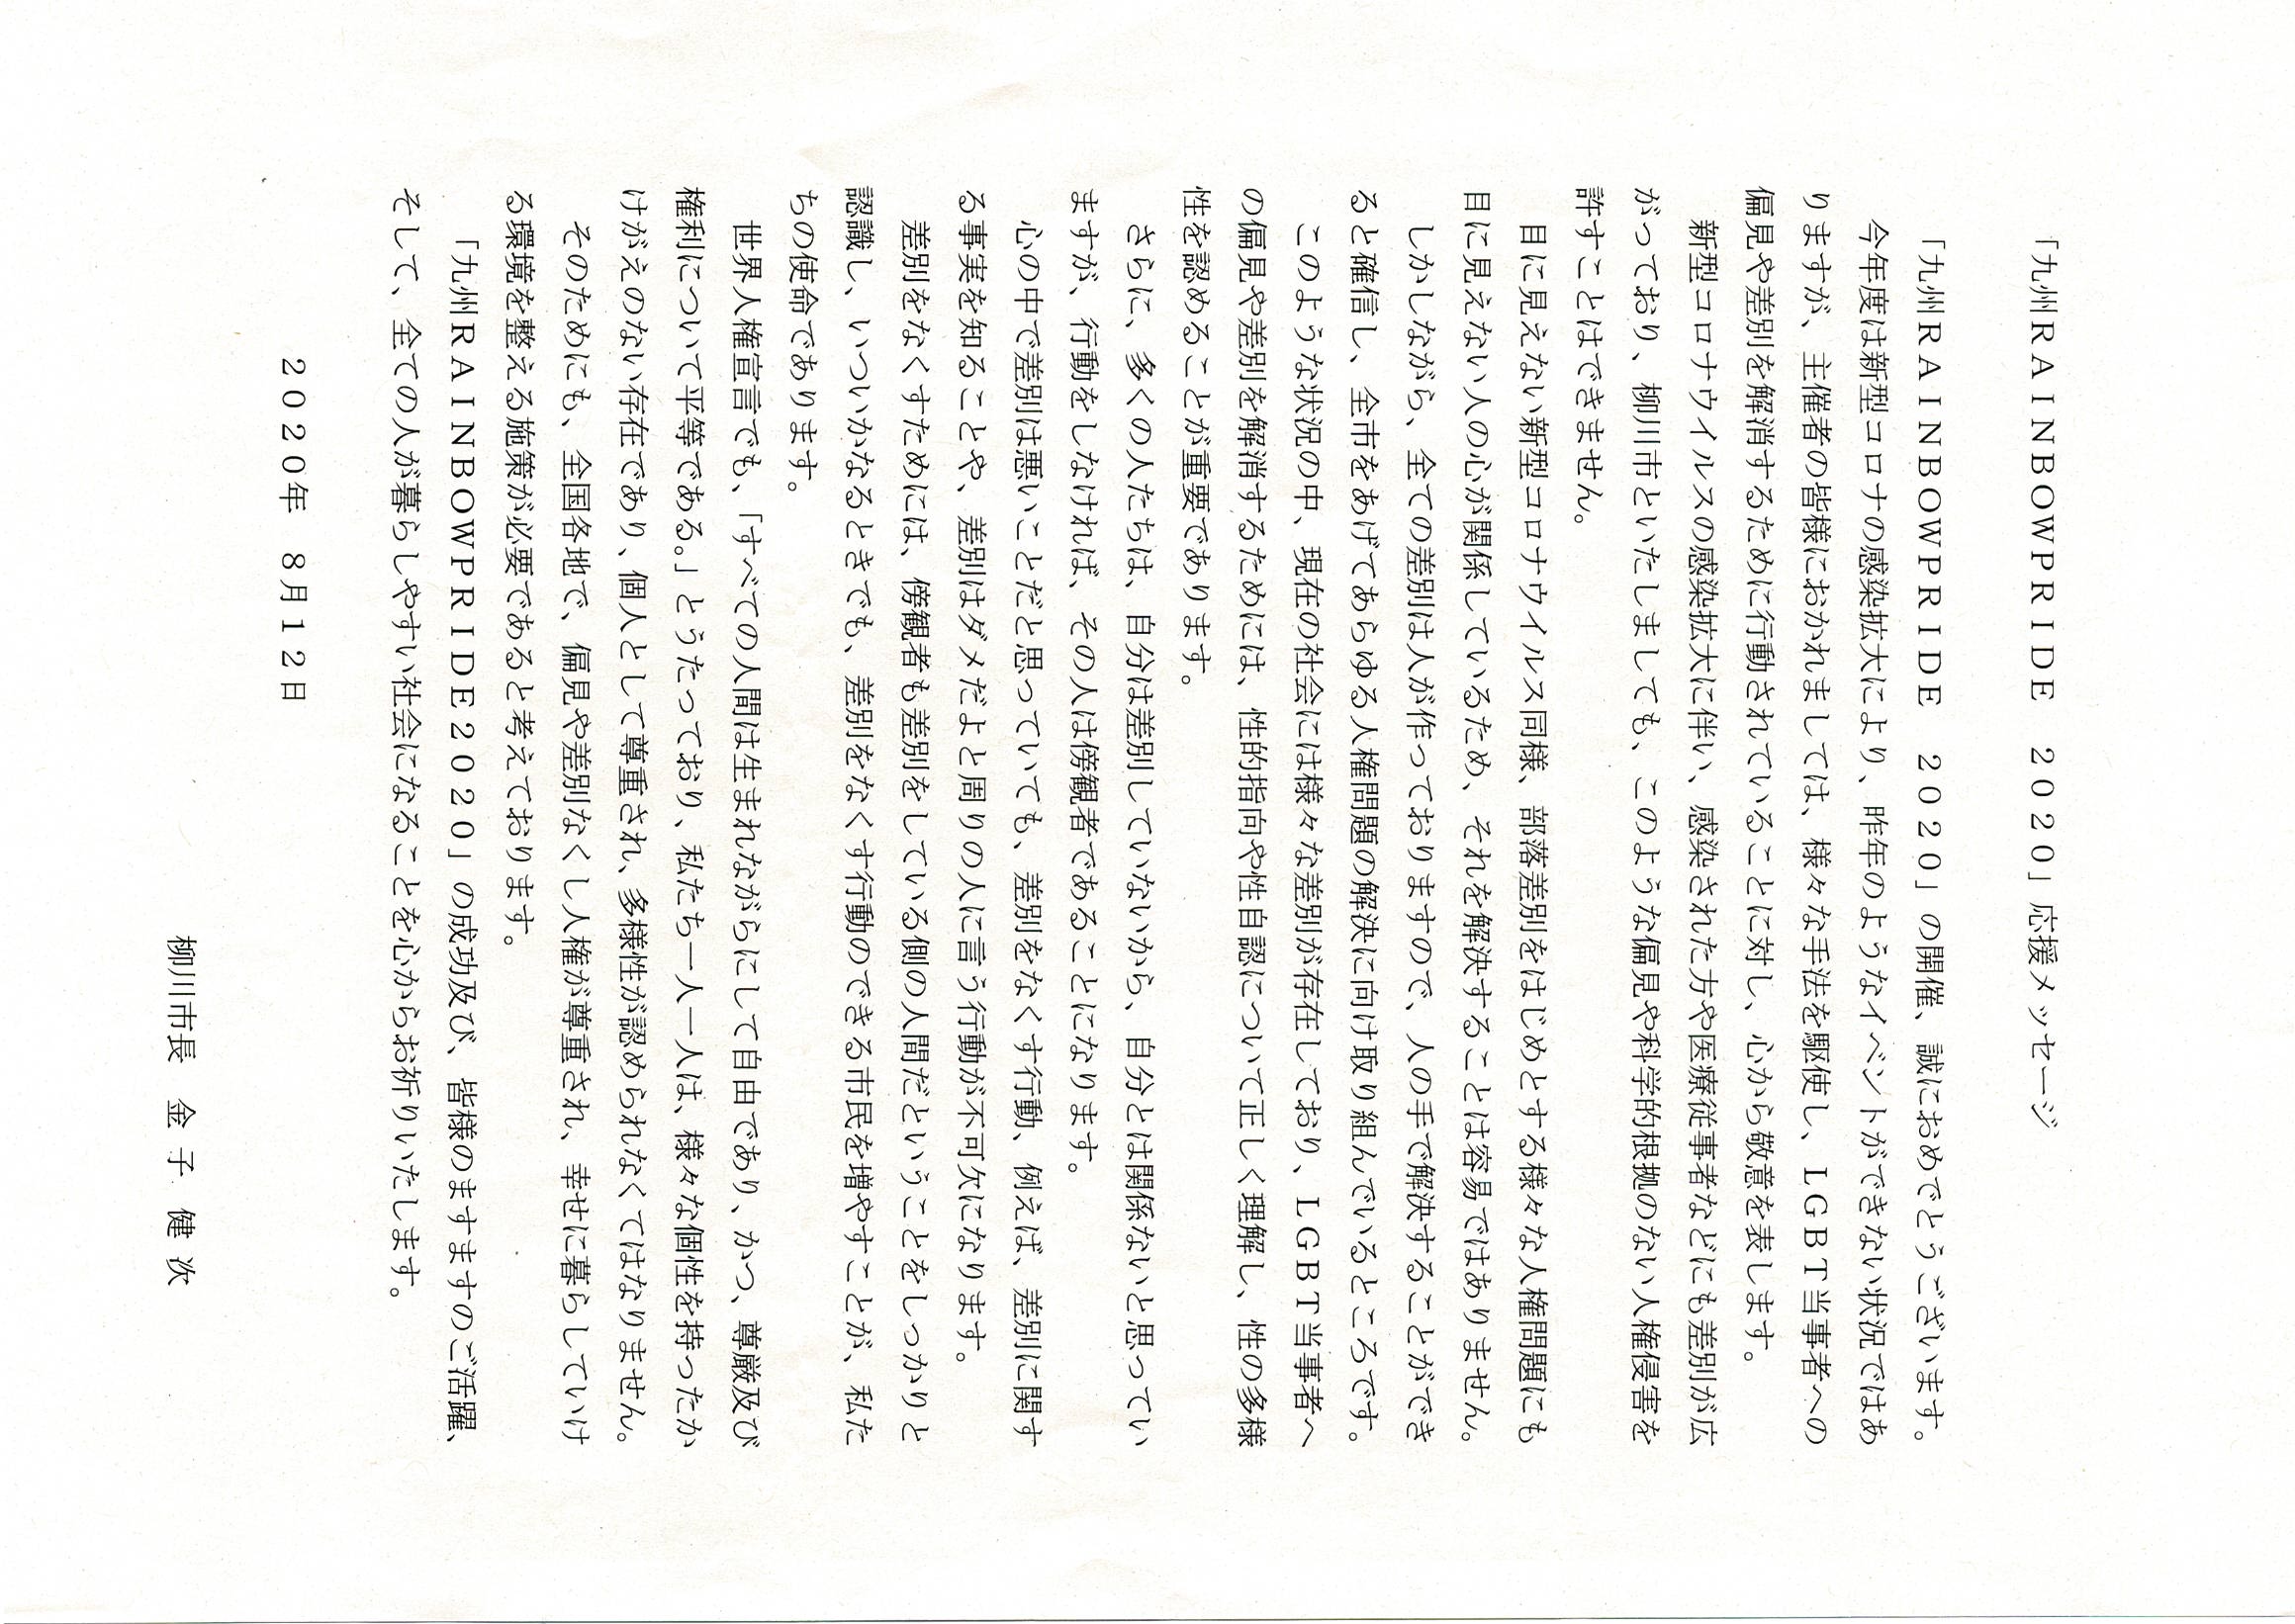 「九州ＲＡＩＮＢＯＷＰＲＩＤＥ　２０２０」応援メッセージ
「九州ＲＡＩＮＢＯＷＰＲＩＤＥ　２０２０」の開催、誠におめでとうございます。
今年度は新型コロナの感染拡大により、昨年のようなイベントができない状況ではあ
りますが、主催者の皆様におかれましては、様々な手法を駆使し、ＬＧＢＴ当事者への
偏見や差別を解消するために行動されていることに対し、心から敬意を表します。
新型コロナウイルスの感染拡大に伴い、感染された方や医療従事者などにも差別が広
がっており、柳川市といたしましても、このような偏見や科学的根拠のない人権侵害を
許すことはできません。
目に見えない新型コロナウイルス同様、部落差別をはじめとする様々な人権問題にも
目に見えない人の心が関係しているため、それを解決することは容易ではありません。
しかしながら、全ての差別は人が作っておりますので、人の手で解決することができ
ると確信し、全市をあげてあらゆる人権問題の解決に向け取り組んでいるところです。
このような状況の中、現在の社会には様々な差別が存在しており、ＬＧＢＴ当事者へ
の偏見や差別を解消するためには、性的指向や性自認について正しく理解し、性の多様
性を認めることが重要であります。
さらに、多くの人たちは、自分は差別していないから、自分とは関係ないと思ってい
ますが、行動をしなければ、その人は傍観者であることになります。
心の中で差別は悪いことだと思っていても、差別をなくす行動、例えば、差別に関す
る事実を知ることや、差別はダメだよと周りの人に言う行動が不可欠になります。
差別をなくすためには、傍観者も差別をしている側の人間だということをしっかりと
認識し、いついかなるときでも、差別をなくす行動のできる市民を増やすことが、私た
ちの使命であります。
世界人権宣言でも、「すべての人間は生まれながらにして自由であり、かつ、尊厳及び
権利について平等である。」とうたっており、私たち一人一人は、様々な個性を持ったか
けがえのない存在であり、個人として尊重され、多様性が認められなくてはなりません。
そのためにも、全国各地で、偏見や差別なくし人権が尊重され、幸せに暮らしていけ
る環境を整える施策が必要であると考えております。
「九州ＲＡＩＮＢＯＷＰＲＩＤＥ２０２０」の成功及び、皆様のますますのご活躍、
そして、全ての人が暮らしやすい社会になることを心からお祈りいたします。
２０２０年　８月１２日
柳川市長　金子　健次